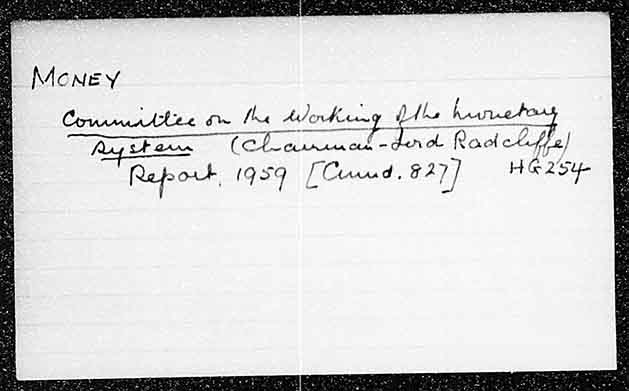 MONEY
Committee on the Working of the Monetary
System (Chairman - Lord Radcliffe)
Report, 1959 [Cmnd. 827] HG254